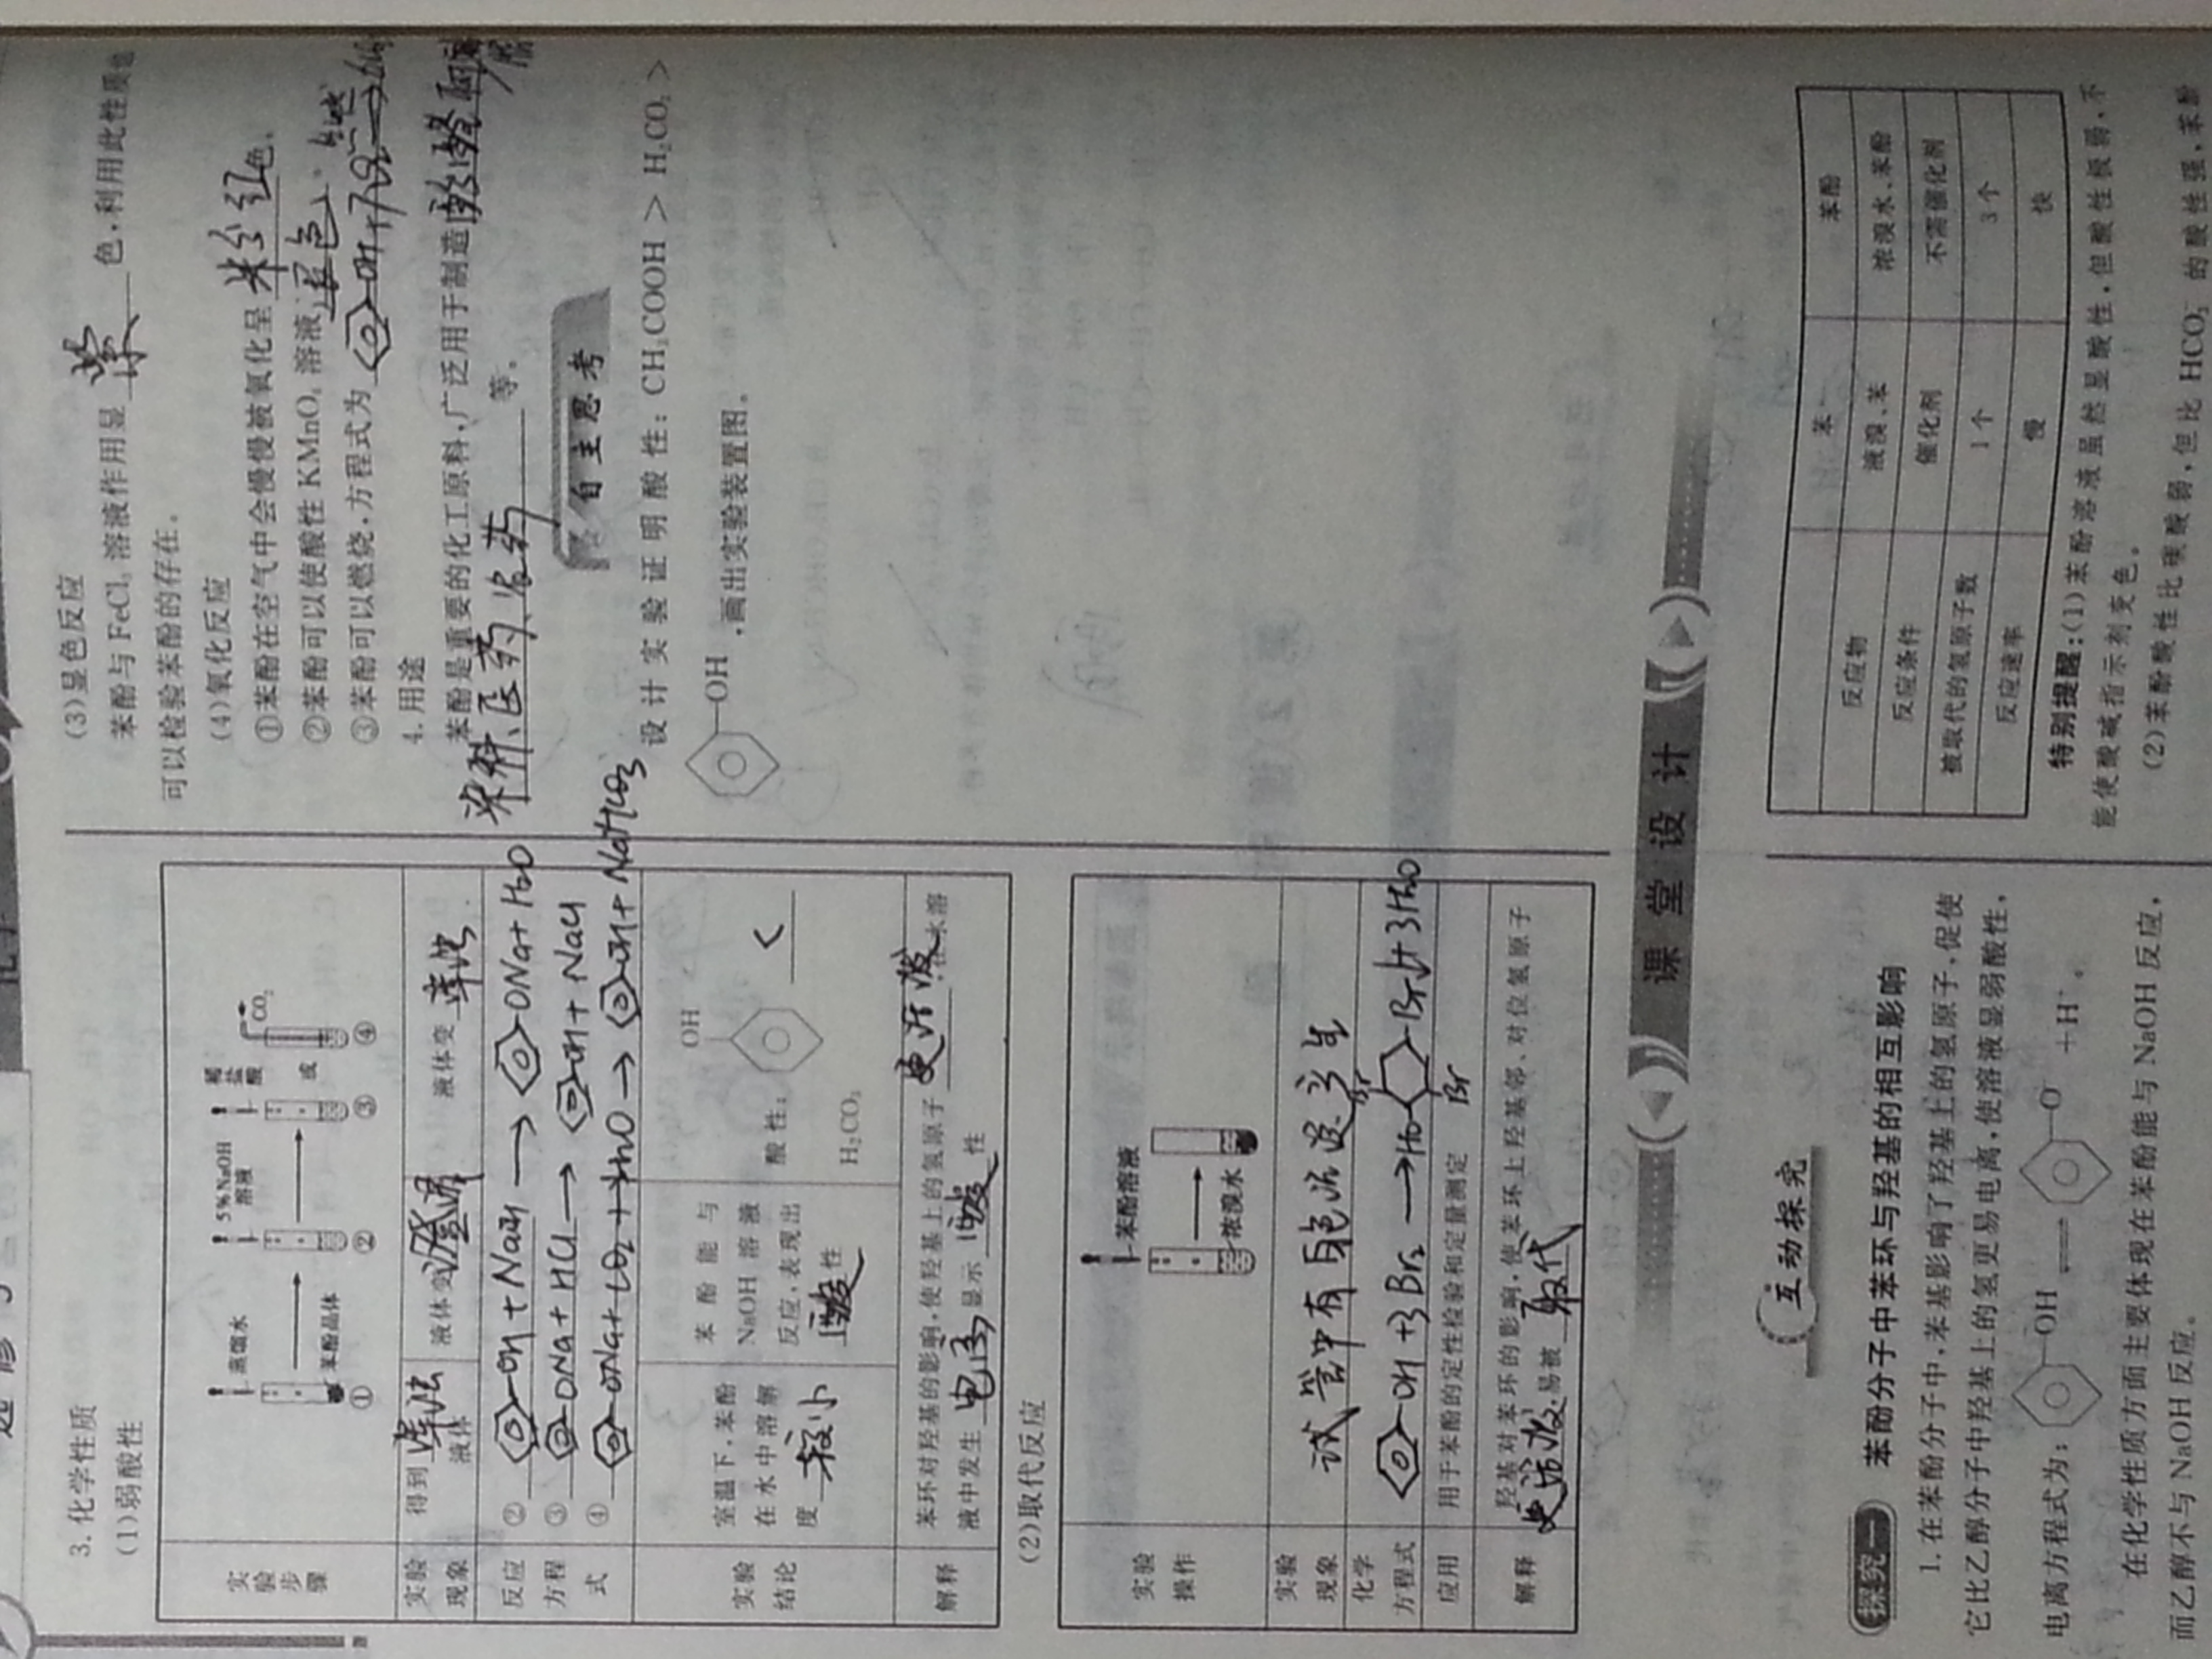 选修5
化学
3.化学性质
(1)弱酸性
实验步骤
蒸馏水
苯酚晶体
①
5%NaOH
溶液
②
稀盐酸
③
或
CO₂
④
实验现象
得到 浑浊
液体
液体变澄清
液体变 浑浊
反应方程式
② -OH + NaOH → -ONa + H₂O
③ -ONa + HCl → -OH + NaCl
④ -ONa + CO₂ + H₂O → -OH + NaHCO₃
实验结论
室温下,苯酚
在水中溶解
度 较小
苯酚能与
NaOH 溶液
反应,表现出
酸 性
OH
酸性: <
H₂CO₃
解释
苯环对羟基的影响,使羟基上的氢原子 更活泼 ,在水溶
液中发生 电离 显示 酸 性
(2)取代反应
实验操作
苯酚溶液
浓溴水
实验现象
试管中有白色沉淀产生
化学方程式
-OH + 3Br₂ → HO- Br Br -Br↓ + 3H₂O
应用
用于苯酚的定性检验和定量测定
解释
羟基对苯环的影响,使苯环上羟基邻、对位氢原子
更活泼,易被 取代
(3)显色反应
苯酚与 FeCl₃ 溶液作用显 紫 色,利用此性质也
可以检验苯酚的存在。
(4)氧化反应
①苯酚在空气中会慢慢被氧化呈 粉红色。
②苯酚可以使酸性 KMnO₄ 溶液 褪色 。
③苯酚可以燃烧,方程式为 -OH + 7O₂ 点燃→ 6CO₂
4.用途
苯酚是重要的化工原料,广泛用于制造酚醛树脂
染料、医药、农药 等。
自主思考
设计实验证明酸性:CH₃COOH > H₂CO₃ >
-OH ,画出实验装置图。
课堂设计
互动探究
探究一 苯酚分子中苯环与羟基的相互影响
1.在苯酚分子中,苯基影响了羟基上的氢原子,促使
它比乙醇分子中羟基上的氢更易电离,使溶液显弱酸性,
电离方程式为: -OH ⇌ -O⁻ +H⁺ 。
在化学性质方面主要体现在苯酚能与 NaOH 反应,
而乙醇不与 NaOH 反应。
苯 苯酚
反应物 液溴、苯 浓溴水、苯酚
反应条件 催化剂 不需催化剂
被取代的氢原子数 1个 3个
反应速率 慢 快
特别提醒:(1)苯酚溶液虽然显酸性,但酸性极弱,不
能使酸碱指示剂变色。
(2)苯酚酸性比碳酸弱,但比 HCO₃⁻ 的酸性强,苯酚